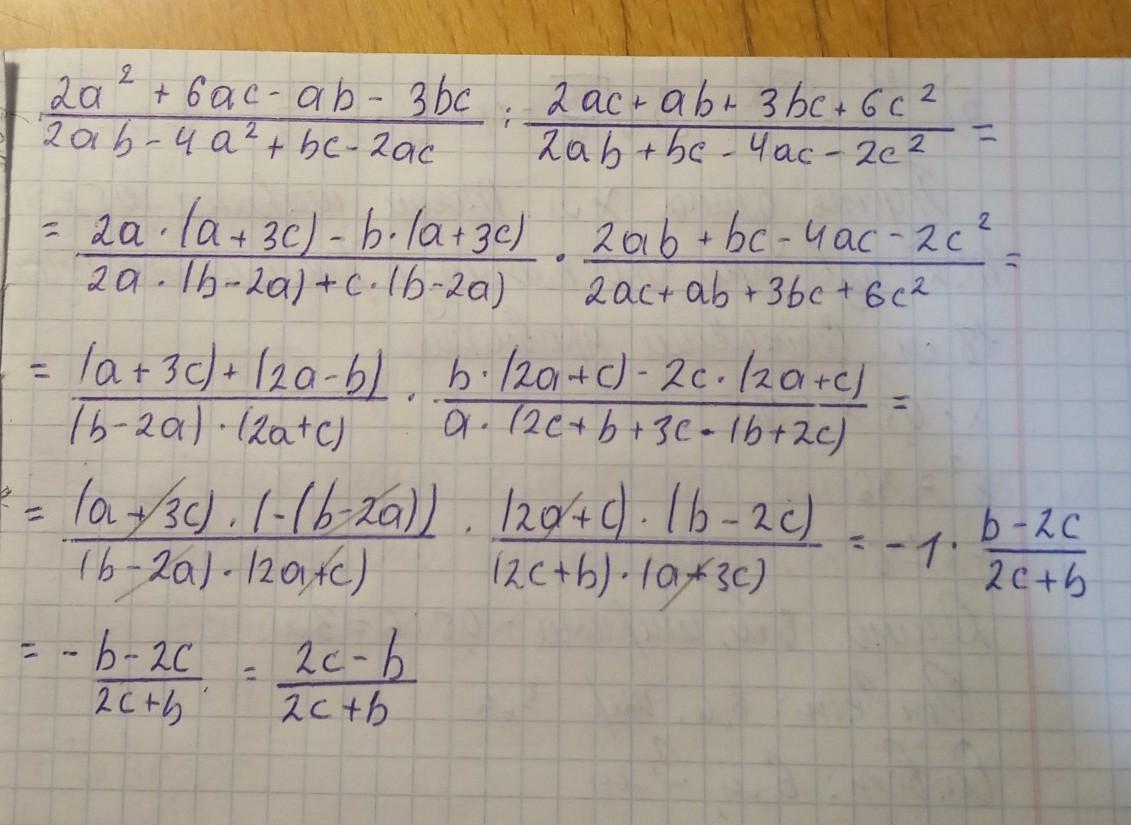 (2a² + 6ac - ab - 3bc)/(2ab - 4a² + bc - 2ac) : (2ac + ab + 3bc + 6c²)/(2ab + bc - 4ac - 2c²) =
= (2a · (a + 3c) - b · (a + 3c))/(2a · (b - 2a) + c · (b - 2a)) · (2ab + bc - 4ac - 2c²)/(2ac + ab + 3bc + 6c²) =
= ((a + 3c) + (2a - b))/((b - 2a) · (2a + c)) · (b · (2a + c) - 2c · (2a + c))/(a · (2c + b + 3c - (b + 2c)) =
= ((a + 3c) · (-(b - 2a)))/((b - 2a) · (2a + c)) · ((2a + c) · (b - 2c))/((2c + b) · (a + 3c)) = -1 · (b - 2c)/(2c + b)
= - (b - 2c)/(2c + b) = (2c - b)/(2c + b)